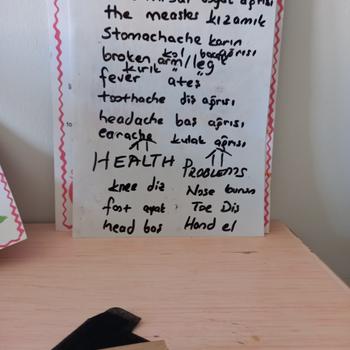 the measles kızamık
Stomachache karın
ağrısı
broken arm/leg kol bacak
kırık
fever ateş
toothache diş ağrısı
headache baş ağrısı
earache kulak ağrısı
HEALTH PROBLEMS
knee diz Nose burun
foot ayak Toe Dis
head baş Hand el